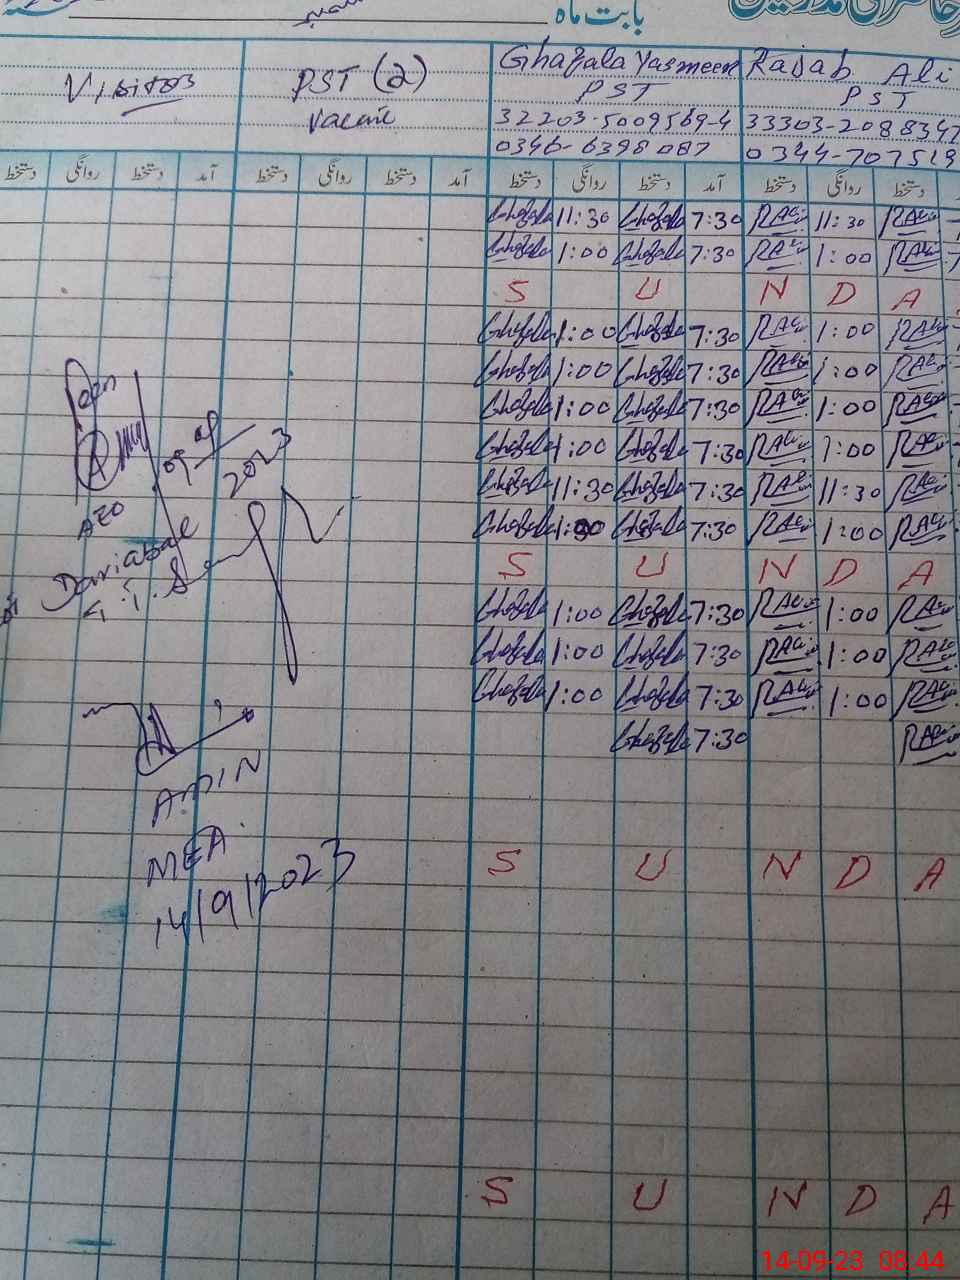 بابت ماہ
Visitors PST (2) Ghazala Yasmeen Rajab Ali
Vacant PST PST
32203-5009569-4 33303-2088347
0346-6398087 0344-707519
دستخط روانگی دستخط آمد دستخط روانگی دستخط آمد دستخط روانگی دستخط آمد دستخط روانگی دستخط
Ghazala 11:30 Ghazala 7:30 RAli 11:30 RAli
Ghazala 1:00 Ghazala 7:30 RAli 1:00 RAli
S U N D A
Ghazala 1:00 Ghazala 7:30 RAli 1:00 RAli
Ghazala 1:00 Ghazala 7:30 RAli 1:00 RAli
Ghazala 1:00 Ghazala 7:30 RAli 1:00 RAli
Ghazala 1:00 Ghazala 7:30 RAli 1:00 RAli
Ghazala 11:30 Ghazala 7:30 RAli 11:30 RAli
Ghazala 1:00 Ghazala 7:30 RAli 1:00 RAli
S U N D A
Ghazala 1:00 Ghazala 7:30 RAli 1:00 RAli
Ghazala 1:00 Ghazala 7:30 RAli 1:00 RAli
Ghazala 1:00 Ghazala 7:30 RAli 1:00 RAli
Ghazala 7:30 RAli
2023
AEO
AMIN
MEA
14/9/2023
S U N D A
S U N D A
14-09-23 08:44